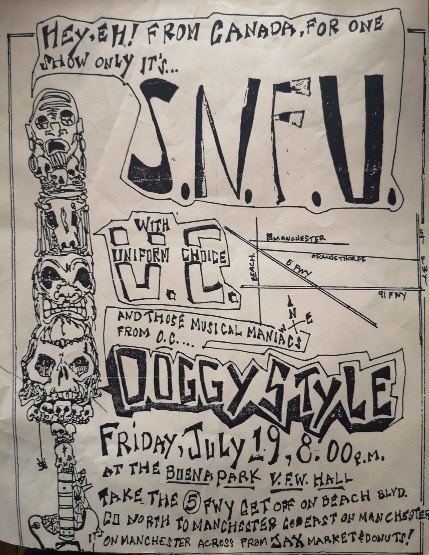 HEY, EH! FROM CANADA, FOR ONE
SHOW ONLY IT'S...
S.N.F.U.
WITH
UNIFORM CHOICE
U.C.
MANCHESTER
ORANGETHORPE
BEACH
5 FWY
91 FWY
N
E
AND THOSE MUSICAL MANIACS
FROM O.C....
DOGGY STYLE
FRIDAY, JULY 19, 8:00 P.M.
AT THE BUENA PARK V.F.W. HALL
TAKE THE 5 FWY GET OFF ON BEACH BLVD.
GO NORTH TO MANCHESTER GO EAST ON MANCHESTER
IT'S ON MANCHESTER ACROSS FROM JAX MARKET & DONUTS!